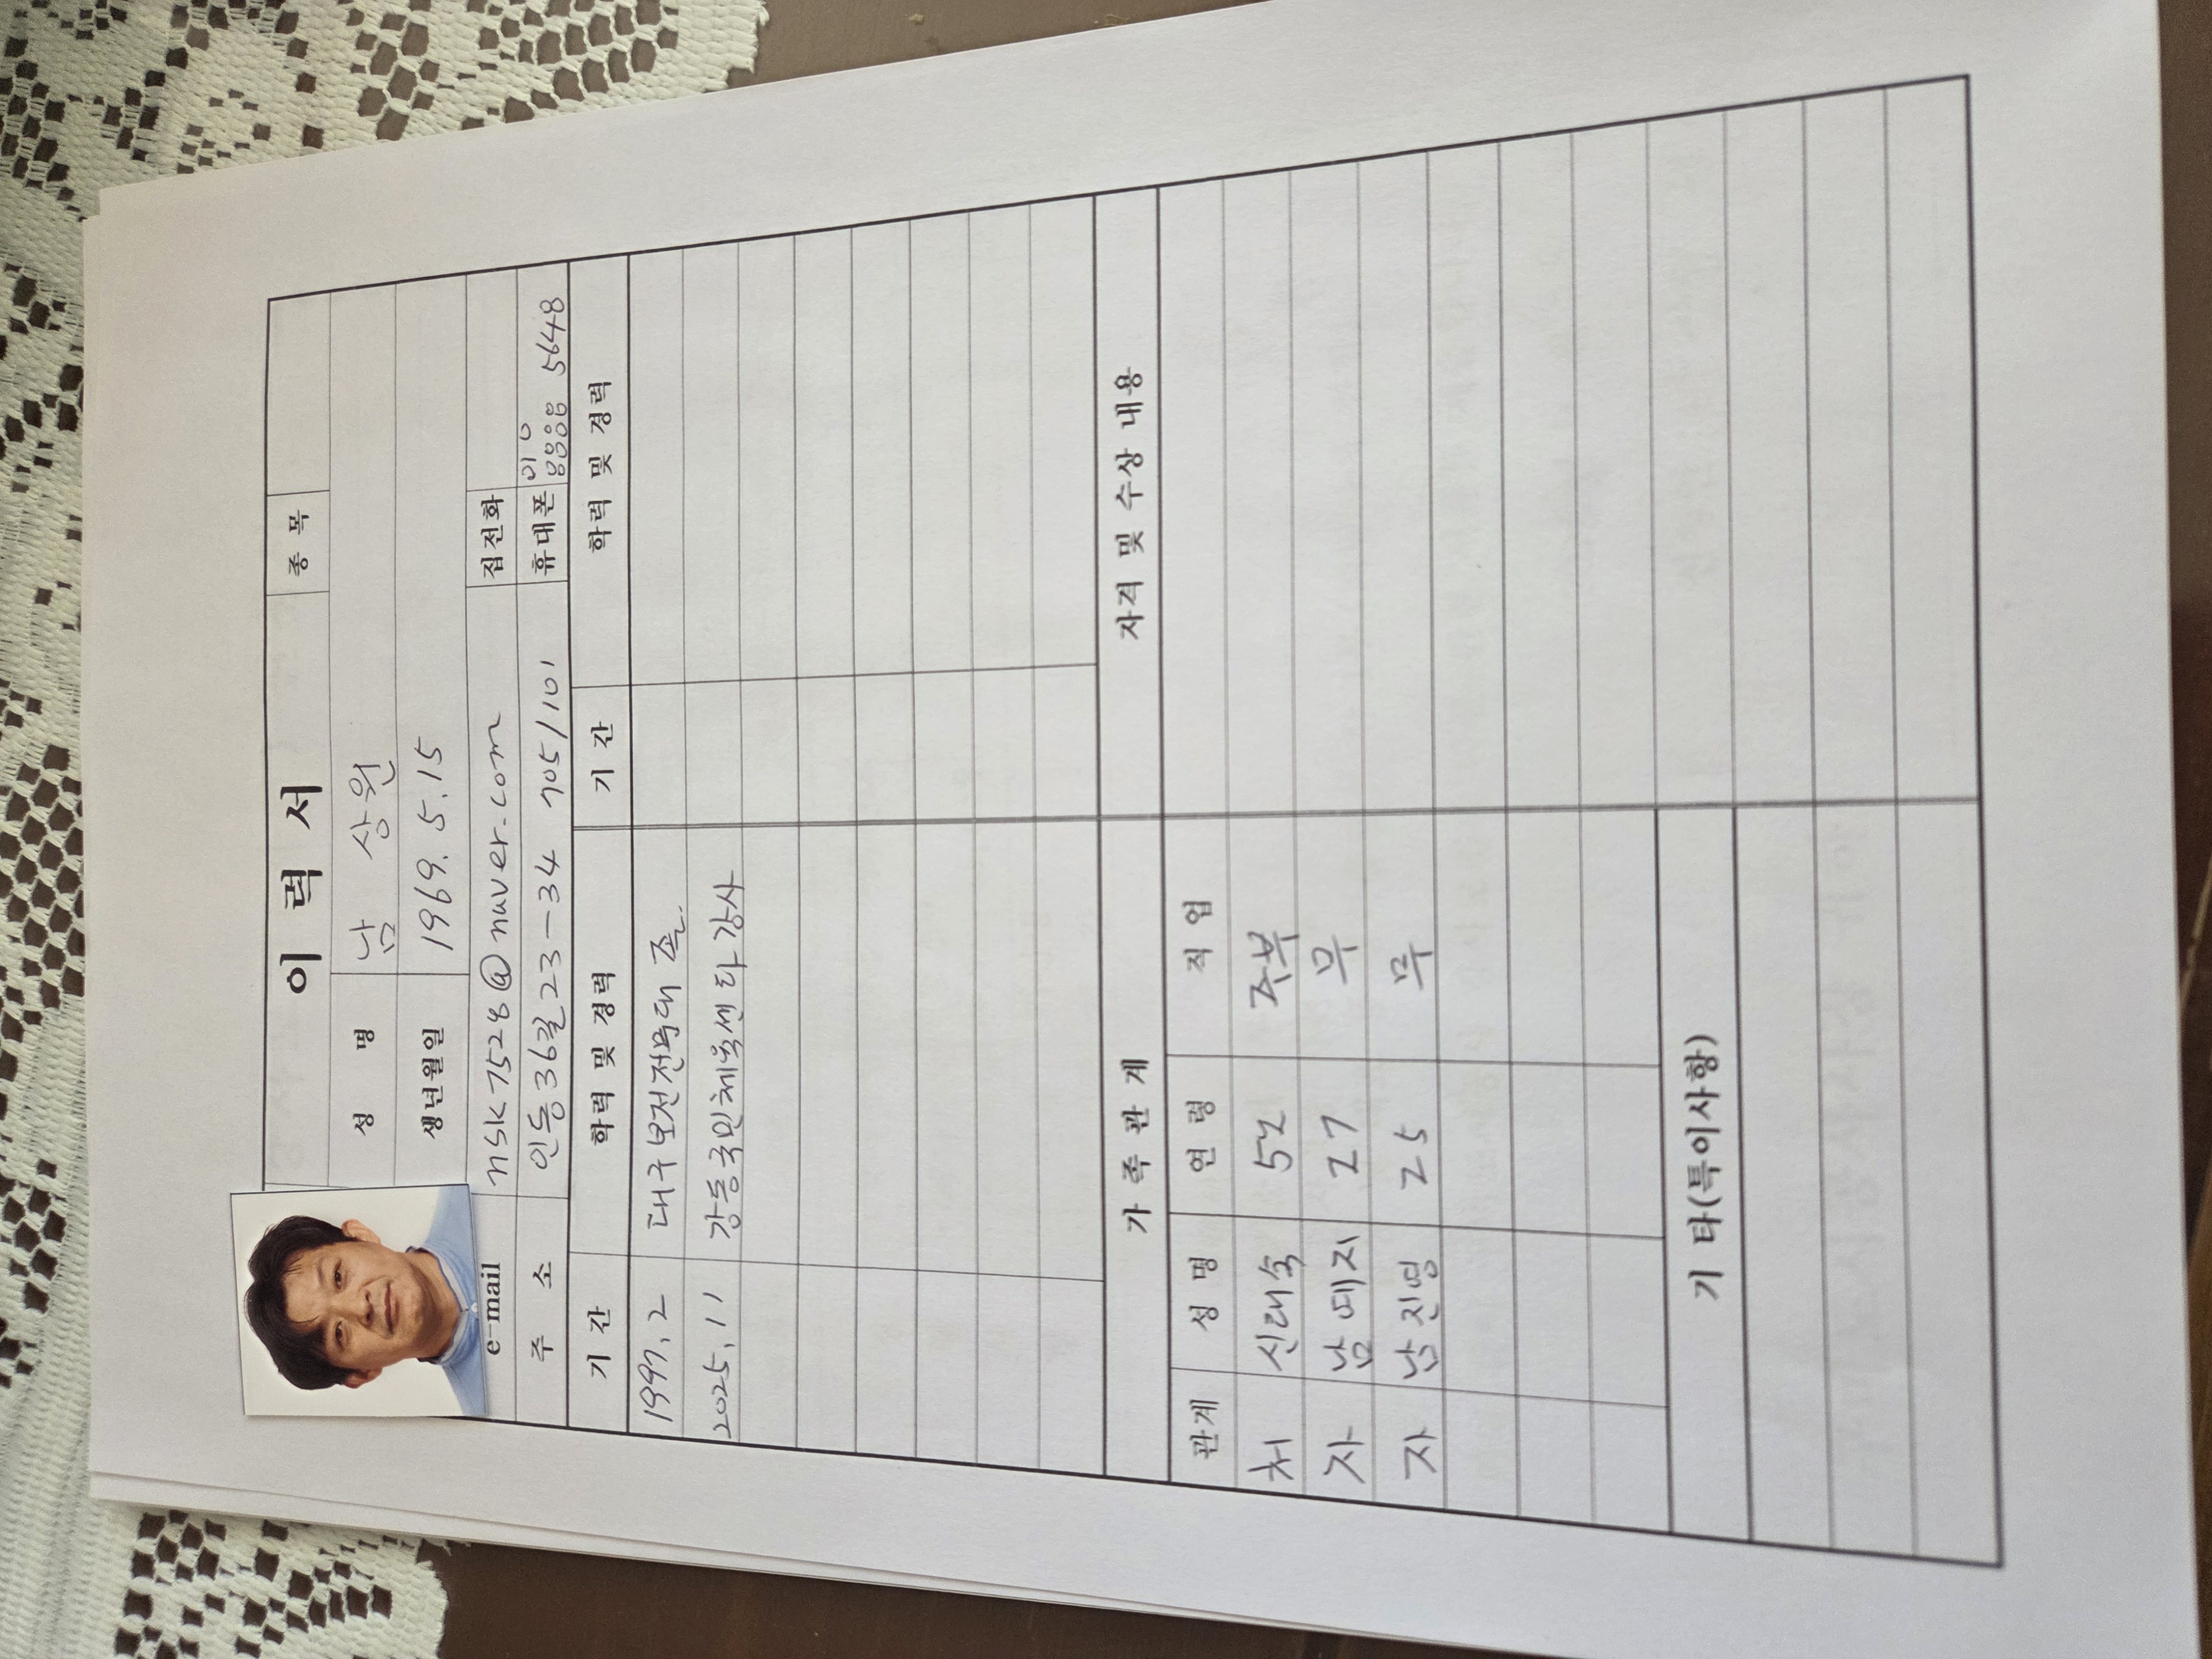 이 력 서 종 목
성 명 남 상원
생년월일 1969. 5. 15
e-mail nsk7528@naver.com 집전화
주 소 인동36길 23-34 705/101 휴대폰 010 8888 5648
기 간 학력 및 경력 기 간 학력 및 경력
1997. 2 대구보건전문대 졸.
2025. 11 강동국민체육센타강사
가 족 관 계 자격 및 수상 내용
관계 성 명 연 령 직 업
처 신태숙 52 주부
자 남예지 27 무
자 남진명 25 무
기 타(특이사항)